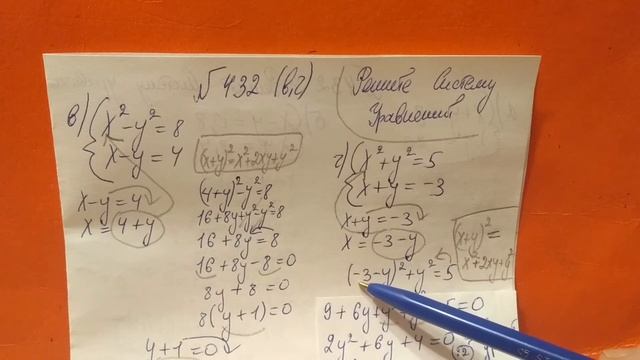 №432 (в,г)
Решите систему
уравнений
в) { x²-y²=8
x-y=4
x-y=4
x=4+y
(x+y)²=x²+2xy+y²
(4+y)²-y²=8
16+8y+y²-y²=8
16+8y=8
16+8y-8=0
8y+8=0
8(y+1)=0
y+1=0
г) { x²+y²=5
x+y=-3
x+y=-3
x=-3-y
(x+y)²=
x²+2xy+y²
(-3-y)²+y²=5
9+6y+y²
5=0
2y²+6y+4=0